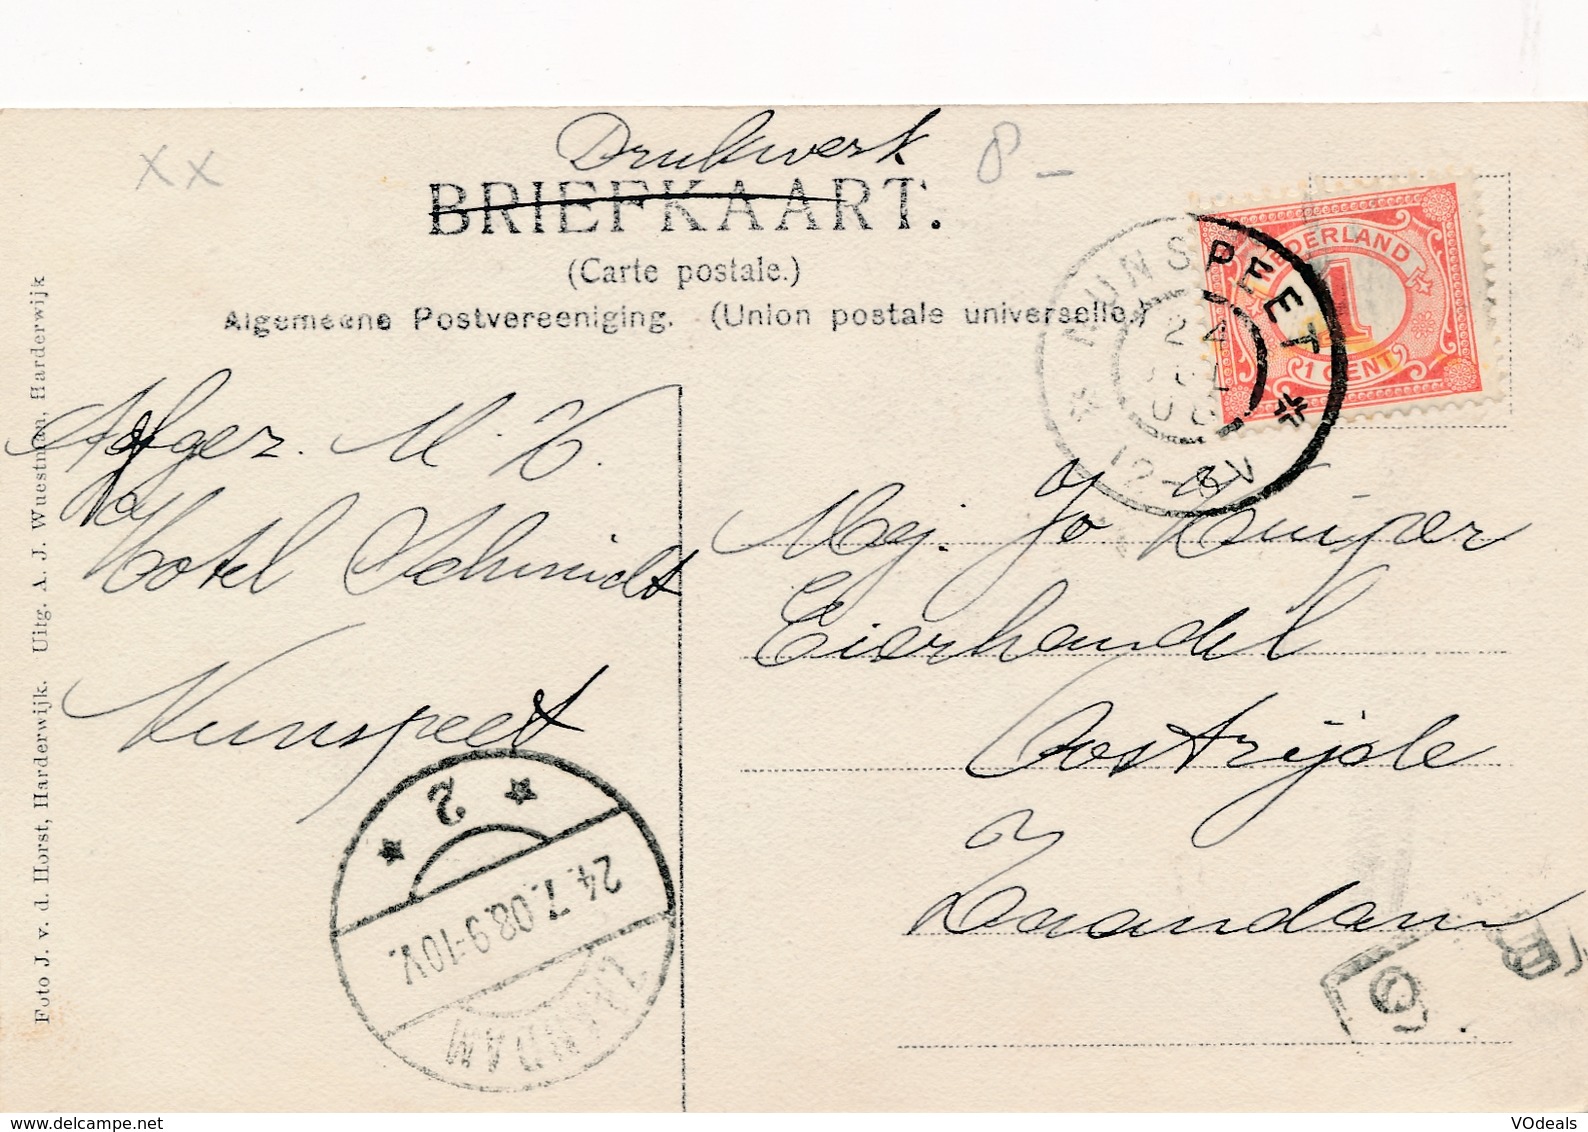 Drukwerk
BRIEFKAART.
(Carte postale.)
Algemeene Postvereeniging. (Union postale universelle.)
XX
8-
NEDERLAND
1
1 CENT
NUNSPEET
24
JUL
12-4V
Afgez. M. V.
Hotel Schmidt
Nunspeet
Mej. Jo Kuiper
Eierhandel
Oostzijde
Zaandam
2
24.7.08.9-10V.
ZAANDAM
Foto J. v. d. Horst, Harderwijk. Uitg. A. J. Wuestman, Harderwijk
VOdeals